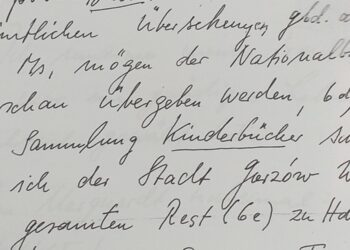 mtlichen Übersetzungen, gbd.
Ms, mögen der Nationalb
schau übergeben werden,
Sammlung Kinderbücher
ich der Stadt Gorzów W
gesamten Rest (6e) zu Ha